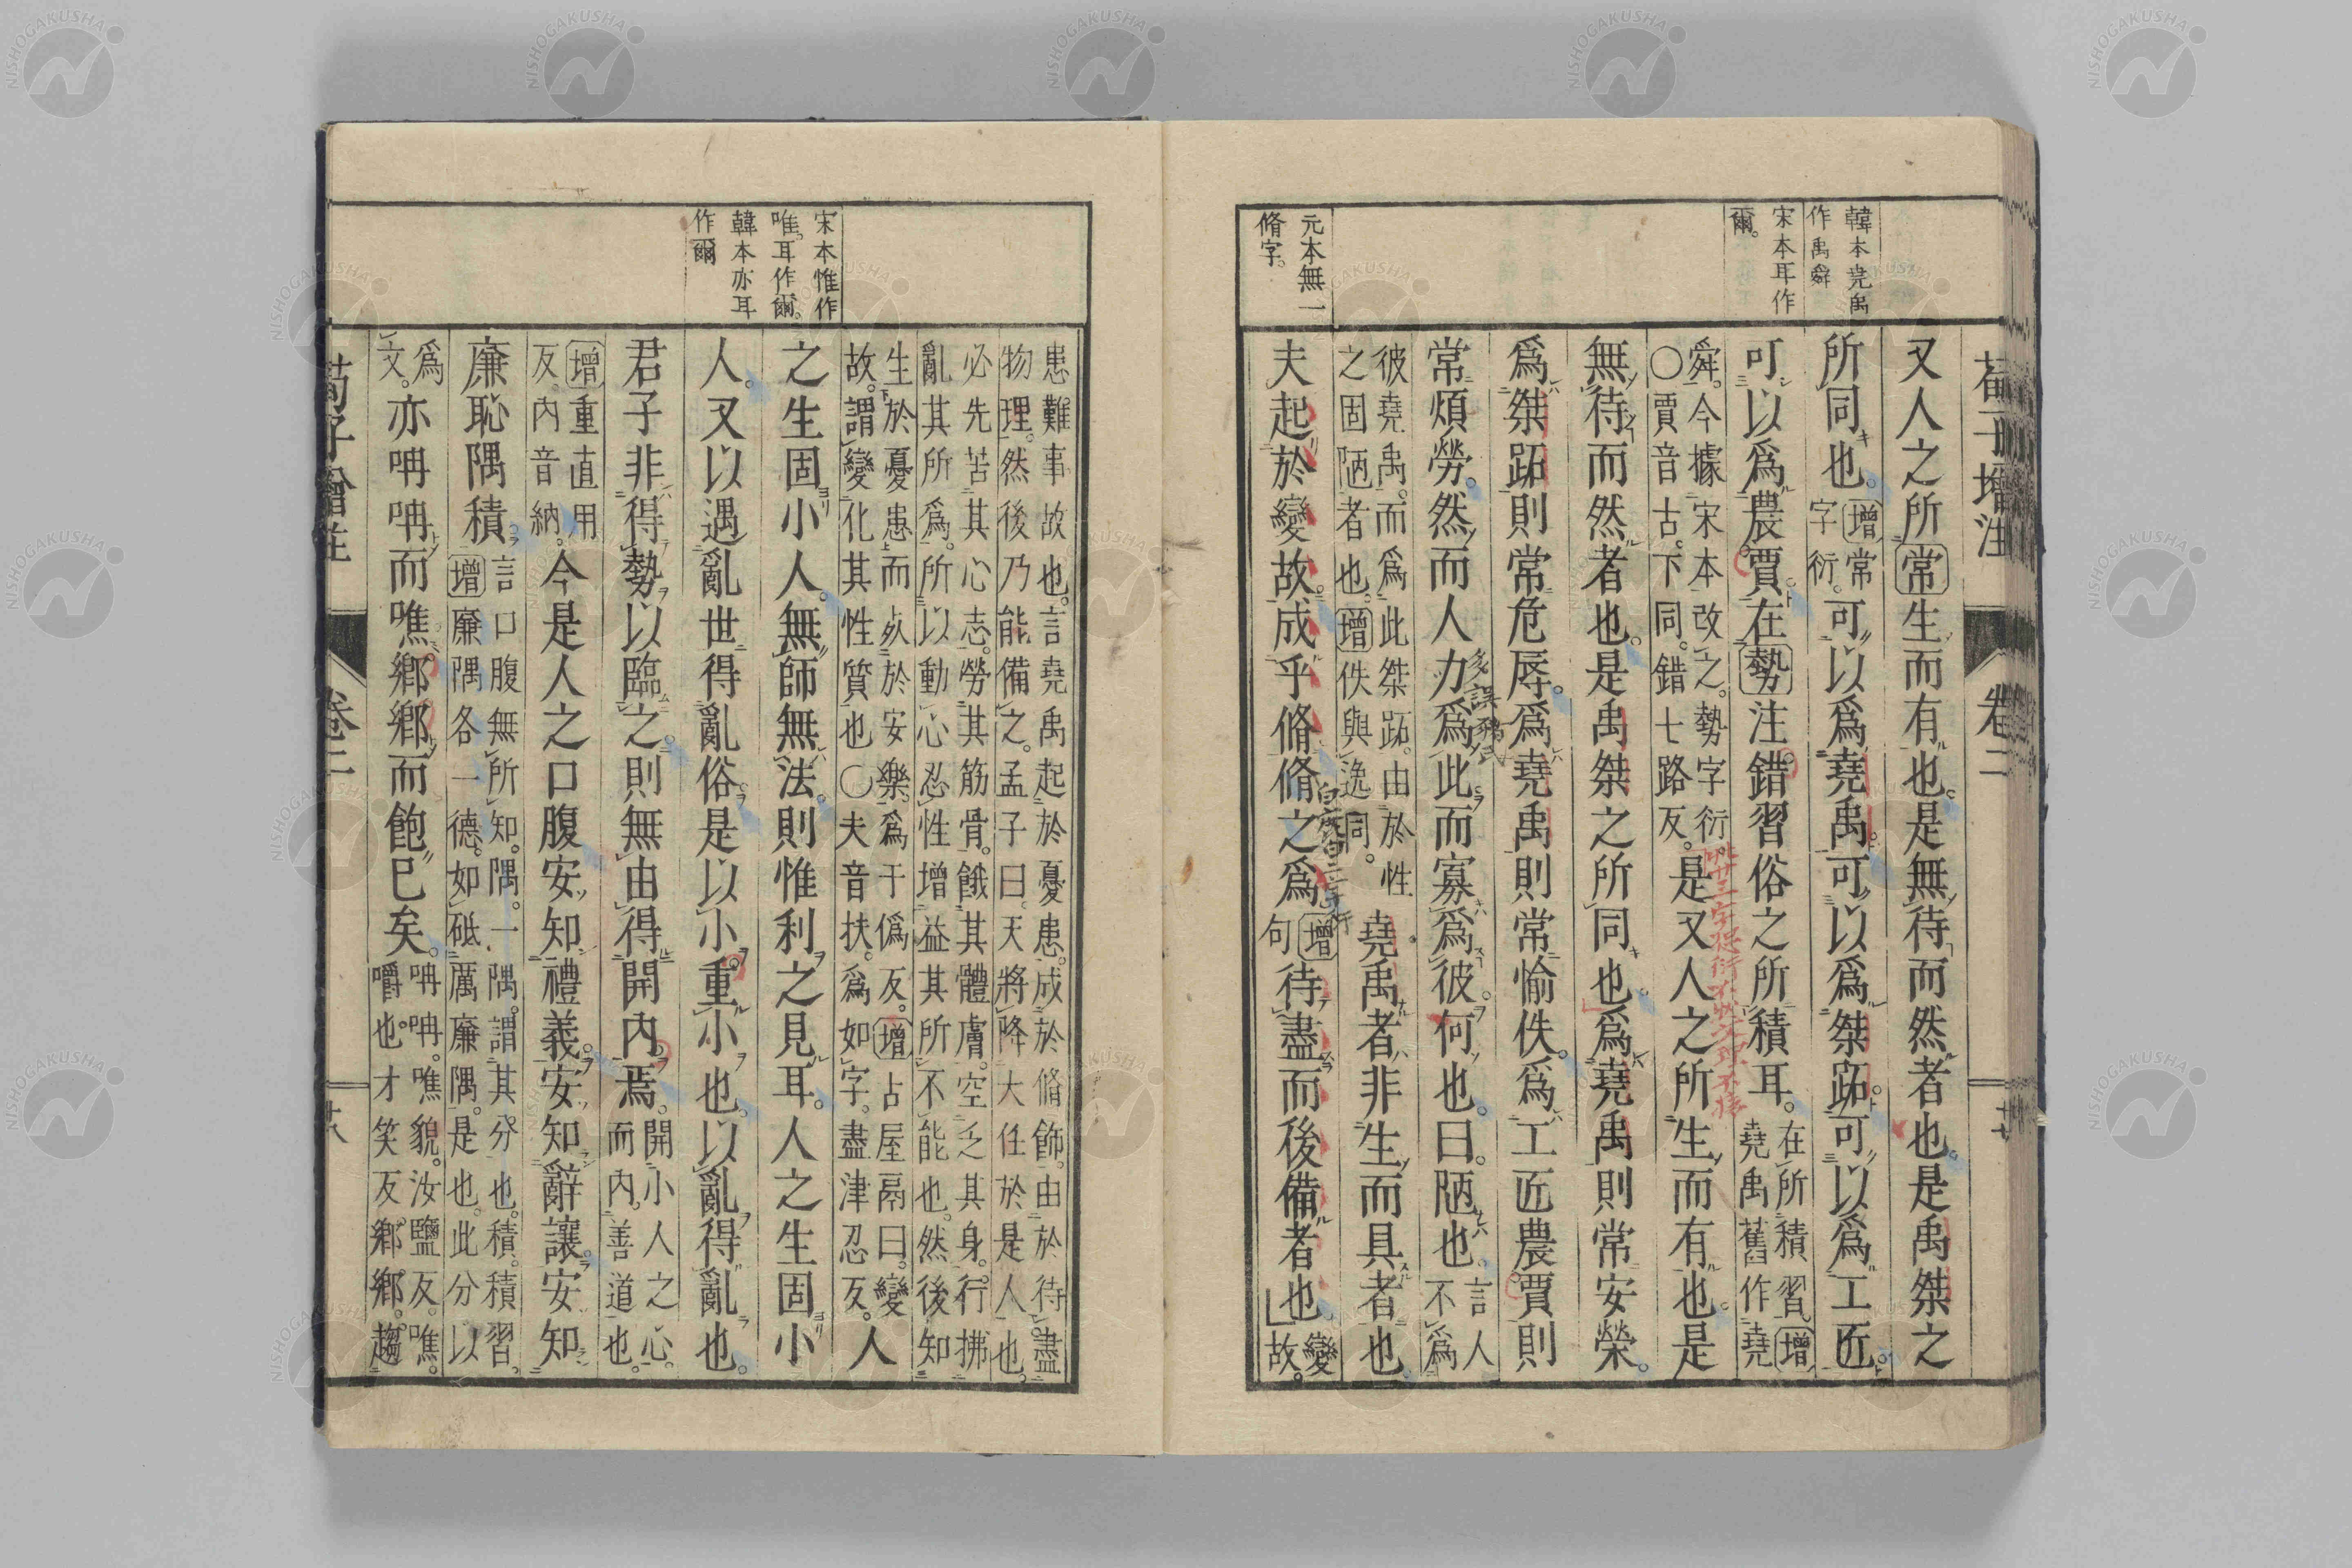 荀子增注
卷二
十七
韓本堯禹
作禹舜
宋本耳作
爾。
元本無一
脩字。
又人之所常生而有也。是無待而然者也。是禹桀之
所同也。增常
字衍。可以爲堯禹。可以爲桀跖。可以爲工匠。
可以爲農賈。在勢注錯習俗之所積耳。在所積習。增
堯禹舊作堯
舜。今據宋本改之。勢字衍。
○賈音古。下同。錯七路反。是又人之所生而有也。是
無待而然者也。是禹桀之所同也。爲堯禹則常安榮。
爲桀跖則常危辱。爲堯禹則常愉佚。爲工匠農賈則
常煩勞。然而人力爲此而寡爲彼。何也。曰。陋也。言人
不爲
彼堯禹。而爲此桀跖。由於性
之固陋者也。增佚與逸同。堯禹者非生而具者也。
夫起於變故。成乎脩脩之爲。增
句待盡而後備者也。變
故。
患難事故也。言堯禹起於憂患。成於脩飾。由於待盡
物理。然後乃能備之。孟子曰。天將降大任於是人也。
必先苦其心志。勞其筋骨。餓其體膚。空乏其身。行拂
亂其所爲。所以動心忍性增益其所不能也。然後知
生於憂患而㱙於安樂。爲于僞反。增占屋鬲曰。變
故。謂變化其性質也○夫音扶。爲如字。盡津忍反。人
之生固小人。無師無法。則惟利之見耳。人之生固小
人。又以遇亂世得亂俗。是以小重小也。以亂得亂也。
君子非得勢以臨之。則無由得開內焉。開小人之心。
而內善道也。
增重直用
反。內音納。今是人之口腹安知禮義。安知辭讓。安知
廉恥隅積。言口腹無所知。隅。一隅。謂其分也。積。積習。
增廉隅各一德。如砥厲廉隅。是也。此分以
爲
文。亦呥呥而噍。鄉鄉而飽已矣。呥呥。噍貌。汝鹽反。噍。
嚼也。才笑反。鄉鄉。趨
宋本惟作
唯。耳作爾。
韓本亦耳
作爾
荀子增注
卷二
十八
NISHOGAKUSHA